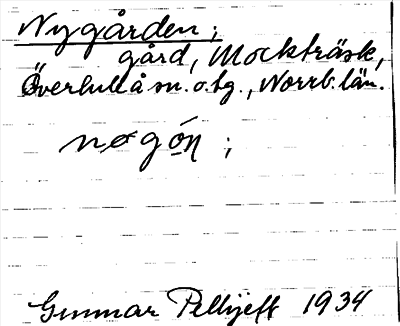 Nygården;
gård, Mockträsk,
Överluleå sn. o. tg., Norrb. län.
nøgǿn ;
Gunnar Pellijeff 1934